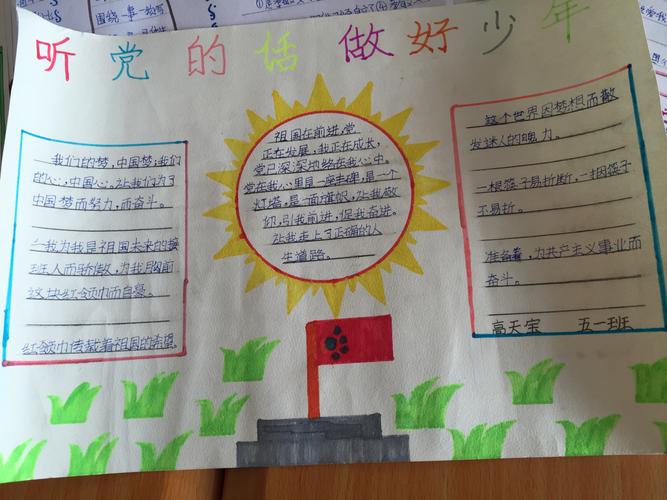 听党的话 做好少年
我们的梦,中国梦,我们
的心,中国心,让我们为了
中国梦而努力,而奋斗。
我为我是祖国未来的接
班人而骄傲,为我胸前
这块红领巾而自豪。
红领巾传载着祖国的希望
祖国在前进,党
正在发展,我正在成长,
党已深深地烙在我心中。
党在我心里是一座丰碑,是一个
灯塔,是一面旗帜,让我敬
仰,引我前进,促我奋进。
让我走上了正确的人
生道路。
这个世界因梦想而散
发迷人的魄力。
一根筷子易折断,一捆筷子
不易折。
准备着,为共产主义事业而
奋斗。
高天宝 五一班